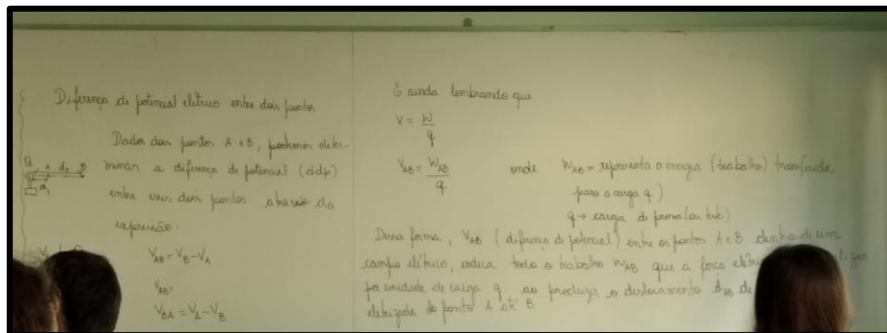 Diferença de potencial elétrico entre dois pontos
Dados dois pontos A e B, podemos deter-
minar a diferença de potencial (ddp)
entre esses dois pontos através da
expressão.
Q A d₂ B
d₁
V_AB = V_B - V_A
V_AB =
V_BA = V_A - V_B
E ainda lembrando que
V = W/q
V_AB = W_AB/q onde W_AB = representa a energia (trabalho) transferida
para a carga q.)
q → carga de prova (ou teste)
Dessa forma, V_AB (diferença de potencial) entre os pontos A e B dentro de um
campo elétrico, indica todo o trabalho W_AB que a força
por unidade de carga q, ao produzir o deslocamento d_AB de
eletrizada do ponto A até B.